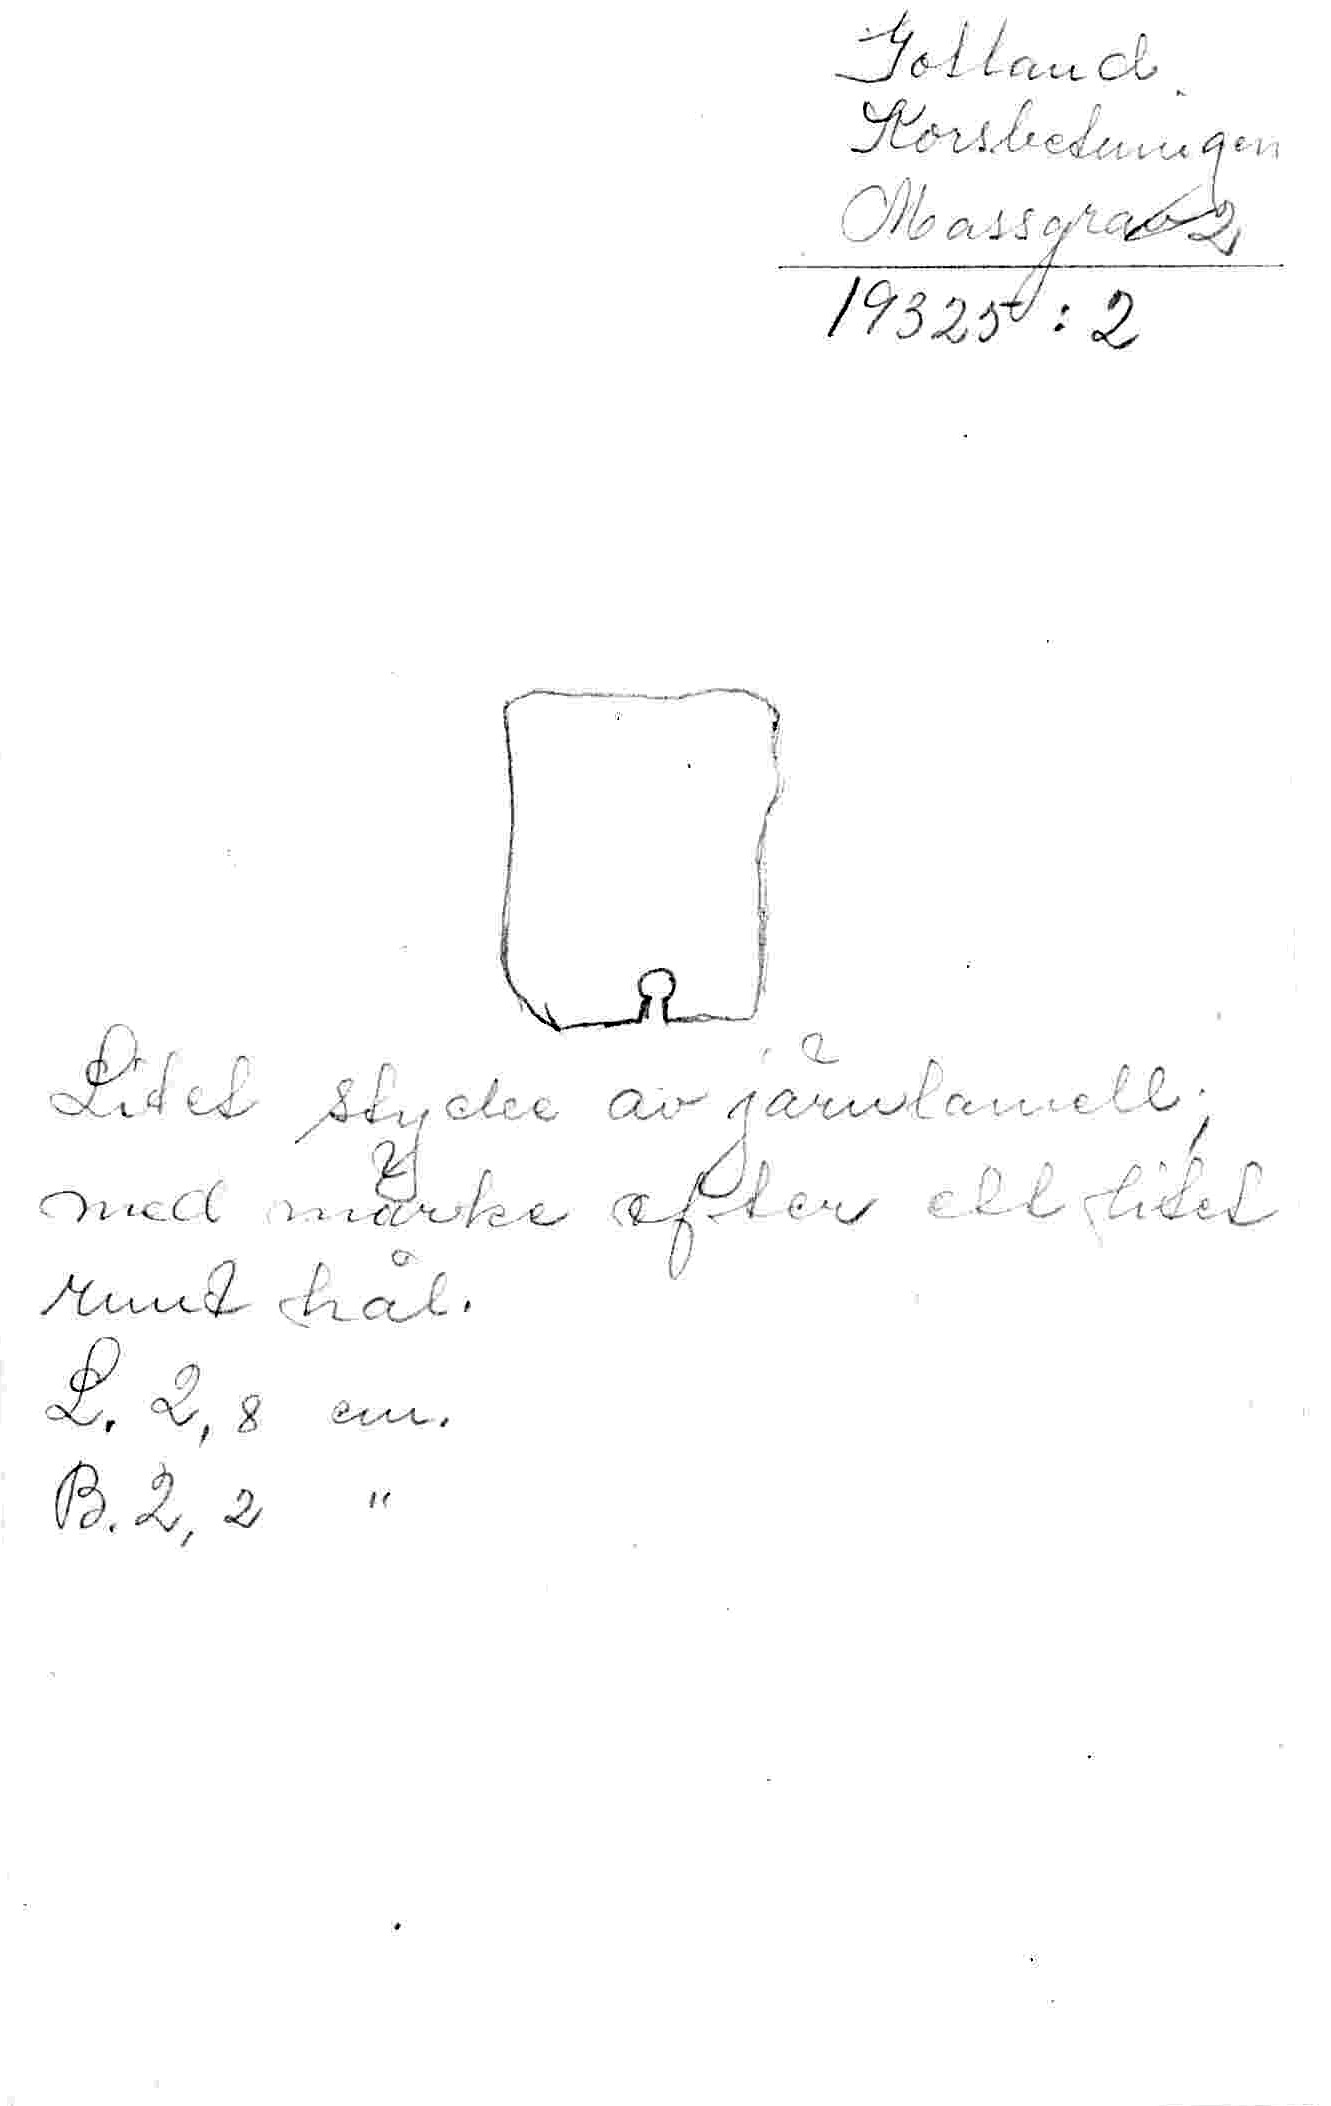 Gotland
Korsbetningen
Massgrav 2
19325 : 2
Litet stycke av järnlamell,
med märke efter ett litet
runt hål.
L. 2,8 cm.
B. 2,2 "